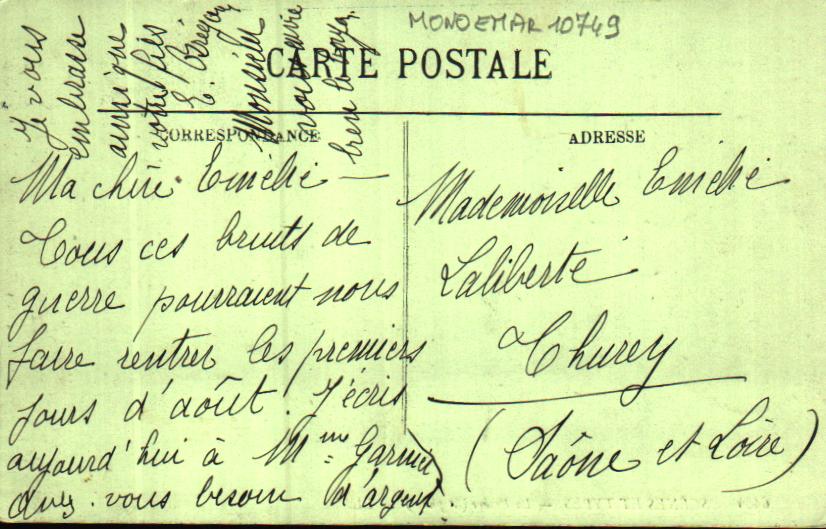 MONDEMAR 10749
CARTE POSTALE
CORRESPONDANCE
ADRESSE
Ma chère Emélie —
Tous ces bruits de
guerre pourraient nous
faire rentrer les premiers
jours d'août. J'écris
aujourd'hui à Mme Garnier
Avez-vous besoin d'argent.
Je vous
embrasse
ainsi que
votre fils
E.
Monsieur
vous
bien
Mademoiselle Emélie
Laliberté
Thurey
(Saône et Loire)